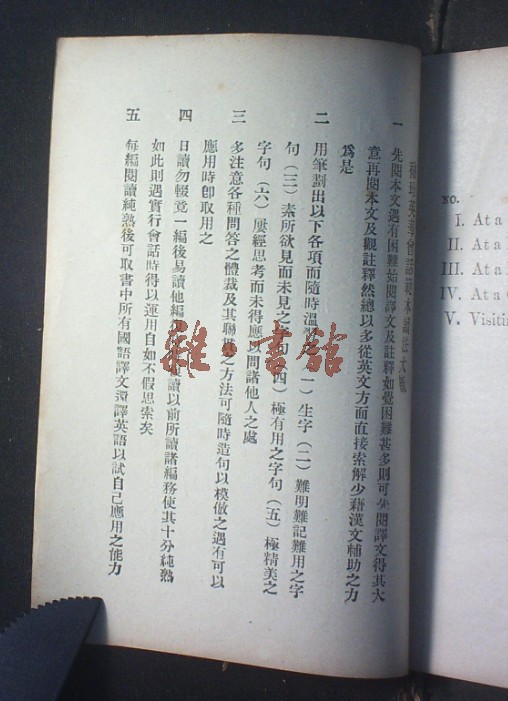 英華會話
一 先閱本文遇有困難始閱譯文及註釋如覺困難甚多則可先閱譯文得其大
意再閱本文及觀註釋然總以多從英文方面直接索解少藉漢文輔助之力
爲是
二 用筆劃出以下各項而隨時溫 一）生字（二）難明難記難用之字
句（三）素所欲見而未見之 句（四）極有用之字句（五）極精美之
字句（六）屢經思考而未得應以問諸他人之處
三 多注意各種問答之體裁及其聯貫之方法可隨時造句以模倣之遇有可以
應用時卽取用之
四 日讀勿輟竟一編後易讀他編 讀以前所讀諸編務使其十分純熟
如此則遇實行會話時得以運用自如不假思索矣
五 每編閱讀純熟後可取書中所有國語譯文還譯英語以試自己應用之能力
雜 書館
NO.
I. At a
II. At a
III. At a
IV. At a
V. Visitin